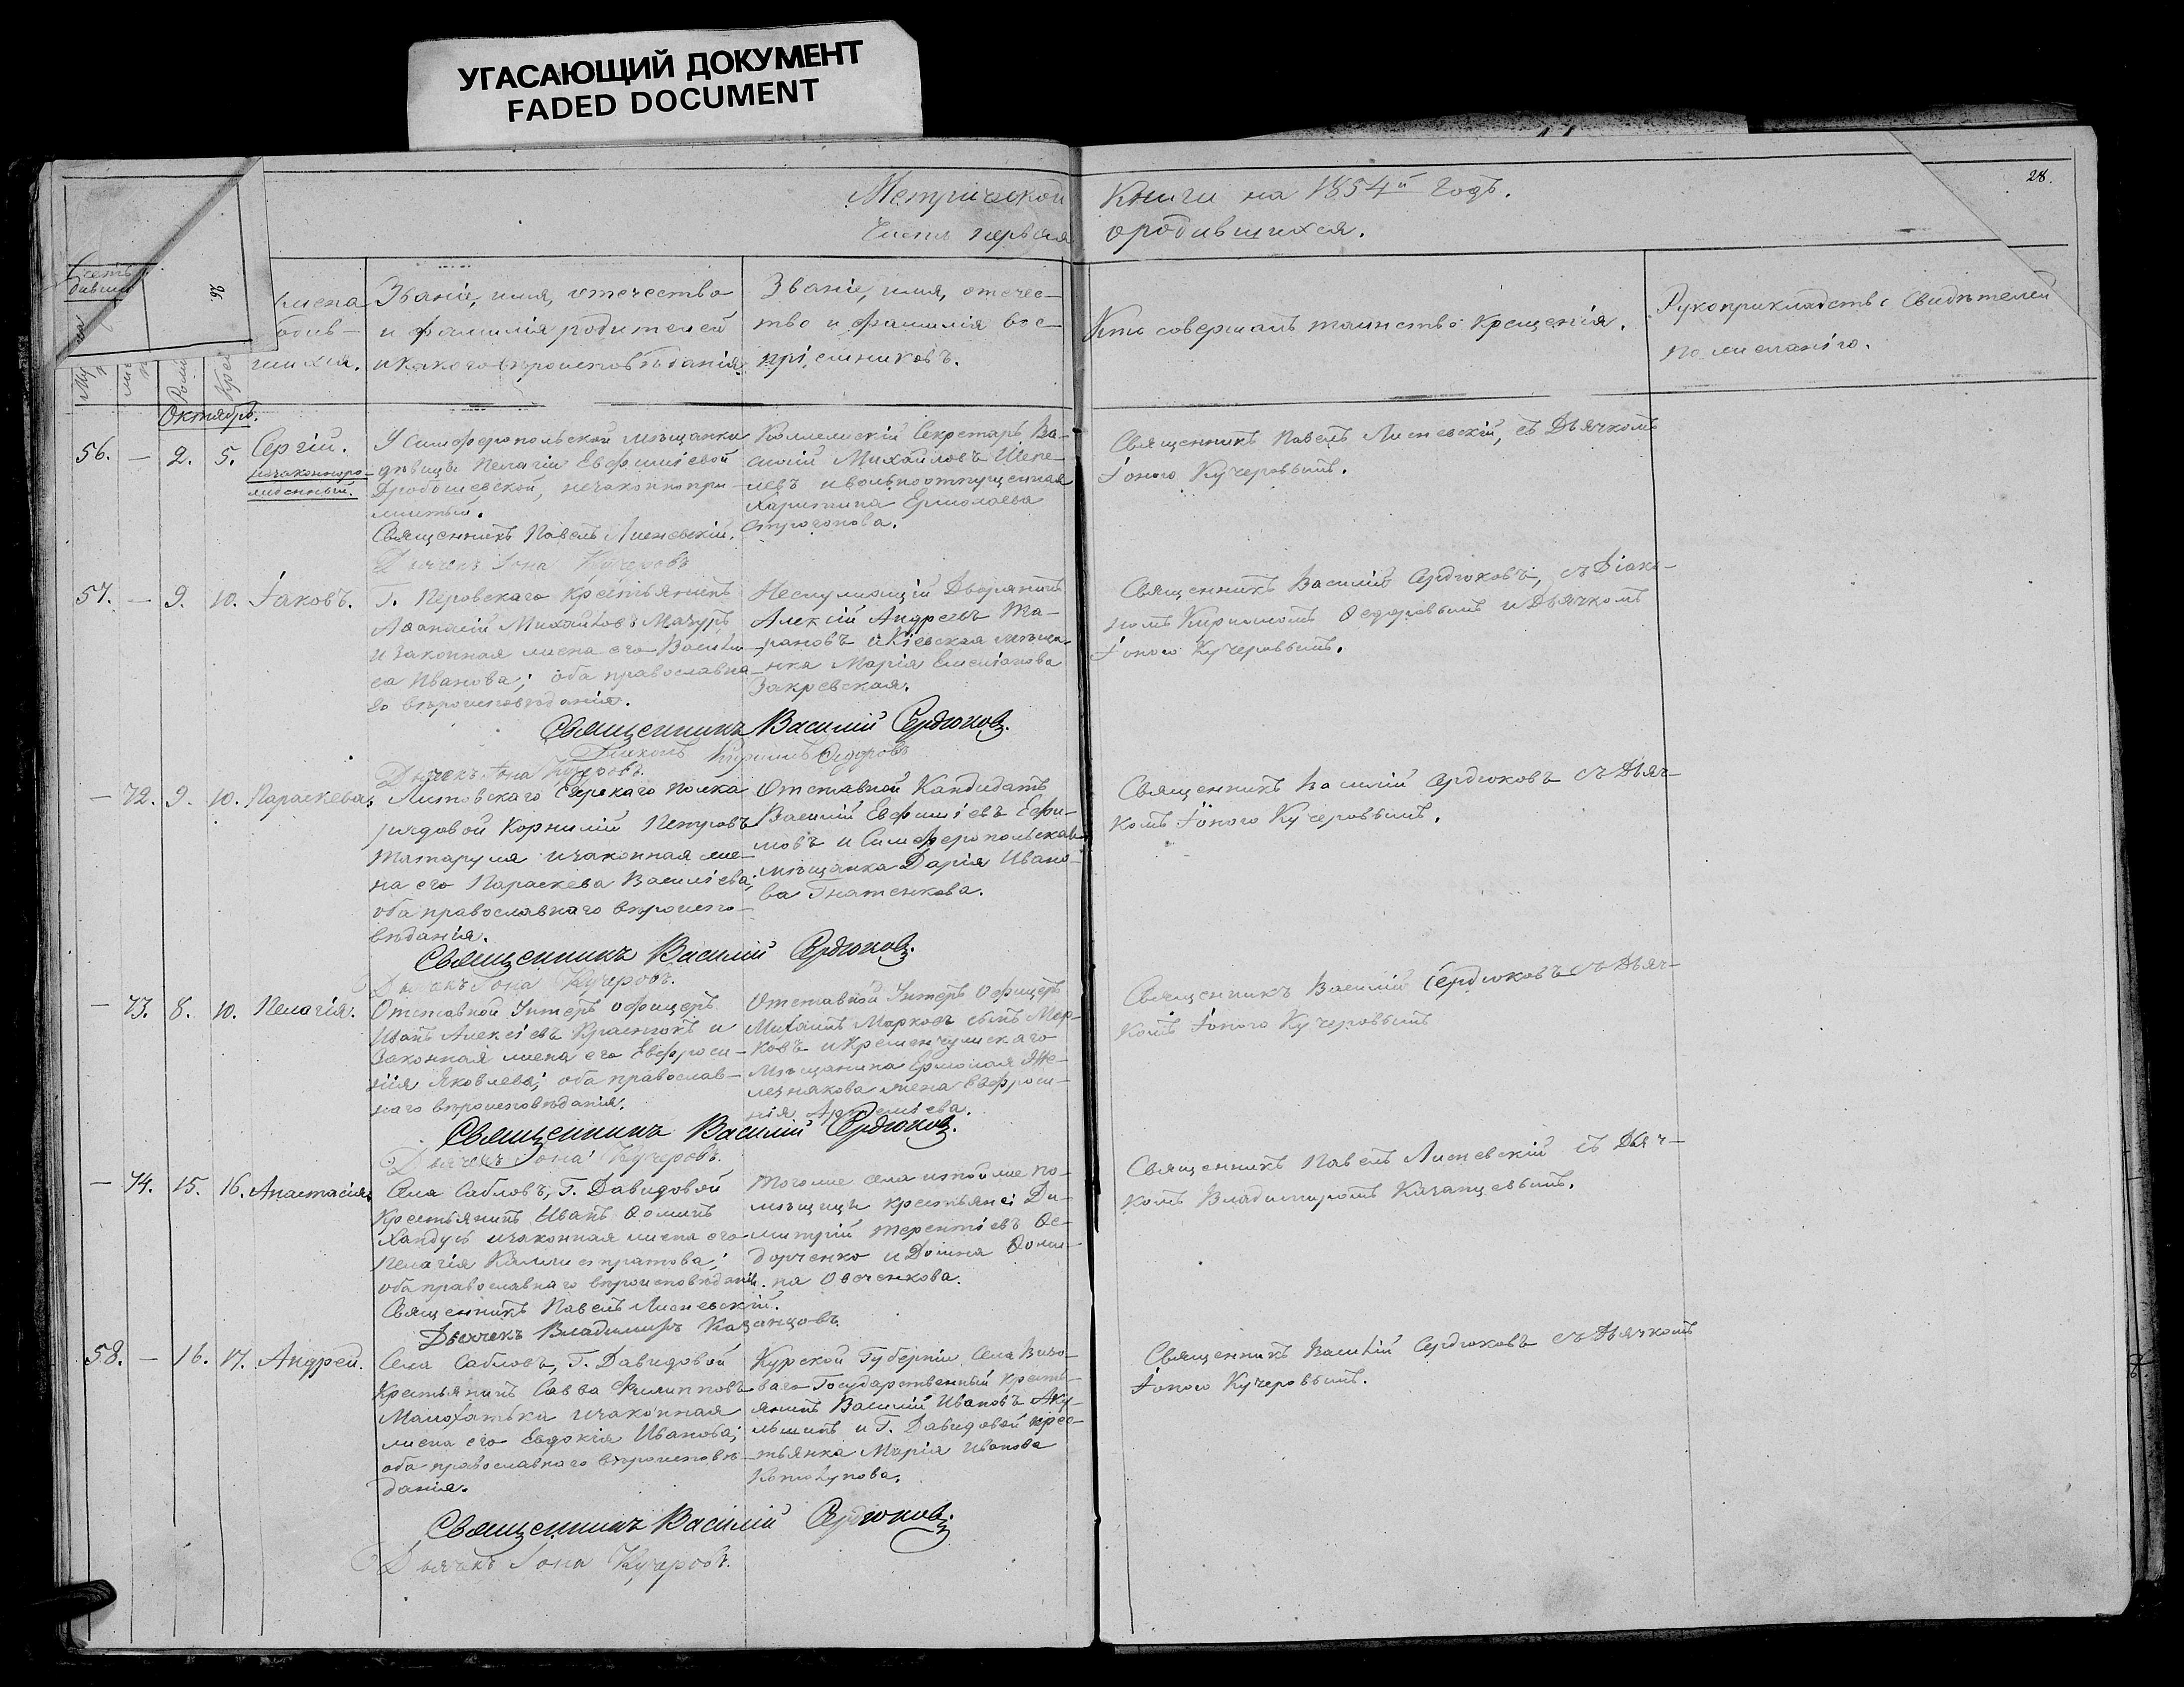 УГАСАЮЩИЙ ДОКУМЕНТ
FADED DOCUMENT
28.
Метрической Книги на 1854й Годъ.
Часть первая о родившихся.
26
Счетъ
Имена
родив-
шихся.
Званіе, имя, отечество
и фамилія родителей
и какого вѣроисповѣданія.
Званіе, имя, отечес-
тво и фамилія вос-
пріемниковъ.
Кто совершалъ таинство Крещенія.
Рукоприкладство Свидѣтелей
по желанію.
Октябрь.
56. — 2. 5. Сергій.
незаконноро-
жденный.
У Симферопольской мѣщанки
дѣвицы Пелагіи Евфиміевой
незаконно при-
житый.
Священникъ Павелъ Лисневскій.
Дьячекъ Іона Кучеровъ
Коллежскій Секретарь Ва-
силій Михайловъ Шепе-
левъ и вольноотпущенная
Харитина Ермолаева
Строгонова.
Священникъ Павелъ Лисневскій, съ Дьячкомъ
Іоною Кучеровымъ.
57. — 9. 10. Іаковъ.
Г. Перовскаго Крестьянинъ
Аѳанасій Михайловъ Мазуръ
и законная жена его Васили-
са Иванова; оба православна-
го вѣроисповѣданія.
Священникъ Василій Сердюковъ.
Діаконъ Кириллъ Ѳедоровъ
Дьячекъ Іона Кучеровъ.
Неслужащій Дворянинъ
Алексій Андреевъ Та-
рановъ и Кіевская мѣща-
нка Марія Емеліанова
Закревская.
Священникъ Василій Сердюковъ, съ Діако-
номъ Кирилломъ Ѳедоровымъ и Дьячкомъ
Іоною Кучеровымъ.
— 72. 9. 10. Параскева.
Литовскаго Егерскаго полка
рядовой Корнилій Петровъ
и законная же-
на его Параскева Василіева;
оба православнаго вѣроиспо-
вѣданія.
Священникъ Василій Сердюковъ.
Дьячекъ Іона Кучеровъ.
Отставной Кандидатъ
Василій Евфиміевъ Ефи-
мовъ и Симферопольская
мѣщанка Дарія Ивано-
ва Гнатенкова.
Священникъ Василій Сердюковъ съ Дьяч-
комъ Іоною Кучеровымъ.
— 73. 8. 10. Пелагія.
Отставной Унтеръ офицеръ
Иванъ Алексіевъ Краснюкъ и
законная жена его Евфроси-
нія Яковлева; оба православ-
наго вѣроисповѣданія.
Священникъ Василій Сердюковъ.
Дьячекъ Іона Кучеровъ.
Отставной Унтеръ Офицеръ
Михаилъ Марковъ сынъ Мар-
ковъ и Кременчугскаго
Мѣщанина Ермолая Же-
лезнякова жена Евфроси-
нія Артеміева.
Священникъ Василій Сердюковъ съ Дьяч-
комъ Іоною Кучеровымъ
— 74. 15. 16. Анастасія.
Села Сабловъ, Г. Давидовой
Крестьянинъ Иванъ Ѳоминъ
Хандусь и законная жена его
Пелагія Каллистратова;
оба православнаго вѣроисповѣданія.
Священникъ Павелъ Лисневскій.
Дьячекъ Владимиръ Казанцовъ.
Тогоже села и тойже по-
мѣщицы крестьяне: Ди-
митрій Терентіевъ Ѳе-
дорченко и Домна Ѳоми-
на Овсенкова.
Священникъ Павелъ Лисневскій съ Дьяч-
комъ Владимиромъ Казанцевымъ.
58. — 16. 17. Андрей.
Села Сабловъ, Г. Давидовой
Крестьянинъ Савва Филипповъ
Малохатька и законная
жена его Евдокія Иванова;
оба православнаго вѣроисповѣ-
данія.
Священникъ Василій Сердюковъ.
Дьячекъ Іона Кучеровъ.
Курской Губерніи Села
Государственный Кресть-
янинъ Василій Ивановъ Аку-
льшинъ и Г. Давидовой крес-
тьянка Марія Иванова
Священникъ Василій Сердюковъ съ Дьячкомъ
Іоною Кучеровымъ.